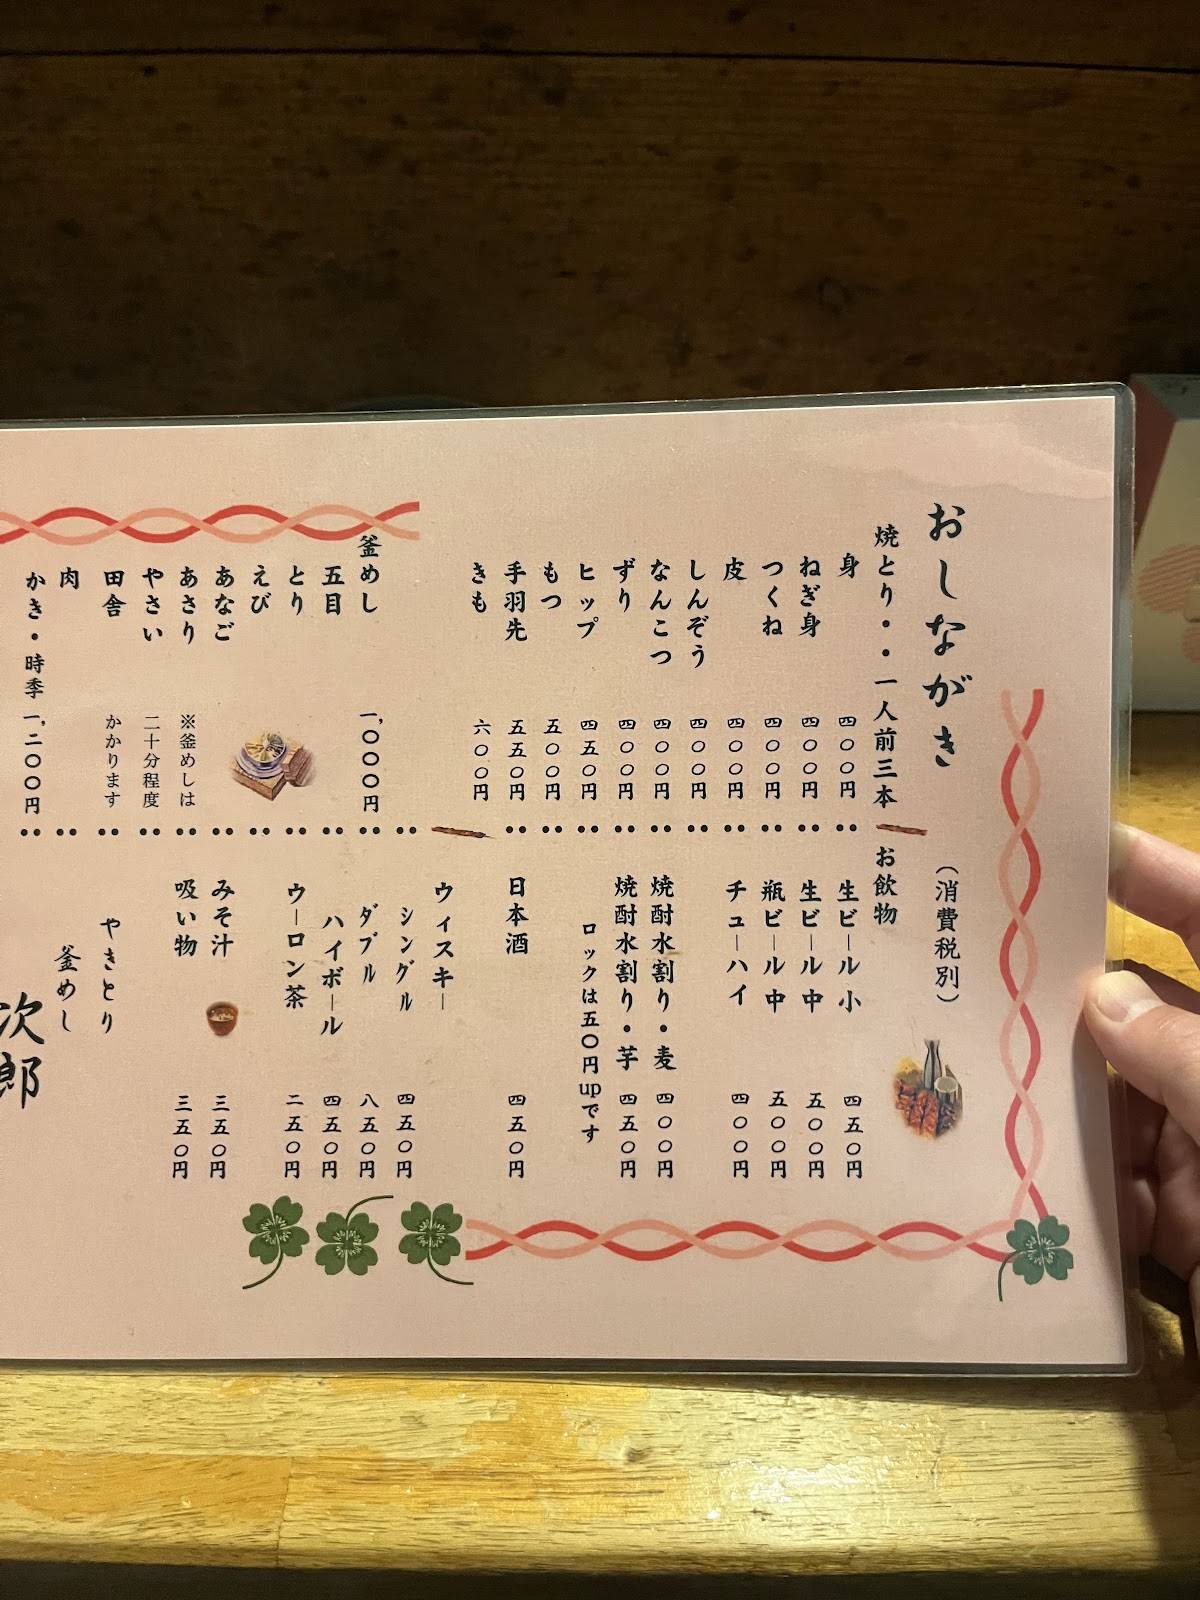 おしながき
(消費税別)
焼とり・・一人前三本
身 四〇〇円
ねぎ身 四〇〇円
つくね 四〇〇円
皮 四〇〇円
しんぞう 四〇〇円
なんこつ 四〇〇円
ずり 四〇〇円
ヒップ 四五〇円
もつ 五〇〇円
手羽先 五五〇円
きも 六〇〇円
釜めし 一,〇〇〇円
五目
とり
えび
あなご
あさり
やさい
田舎
肉
かき・時季 一,二〇〇円
※釜めしは
二十分程度
かかります
お飲物
生ビール 小 四五〇円
生ビール 中 五〇〇円
瓶ビール 中 五〇〇円
チューハイ 四〇〇円
焼酎水割り・麦 四〇〇円
焼酎水割り・芋 四五〇円
ロックは五〇円upです
日本酒 四五〇円
ウィスキー
シングル 四五〇円
ダブル 八五〇円
ハイボール 四五〇円
ウーロン茶 二五〇円
みそ汁 三五〇円
吸い物 三五〇円
やきとり
釜めし
次郎